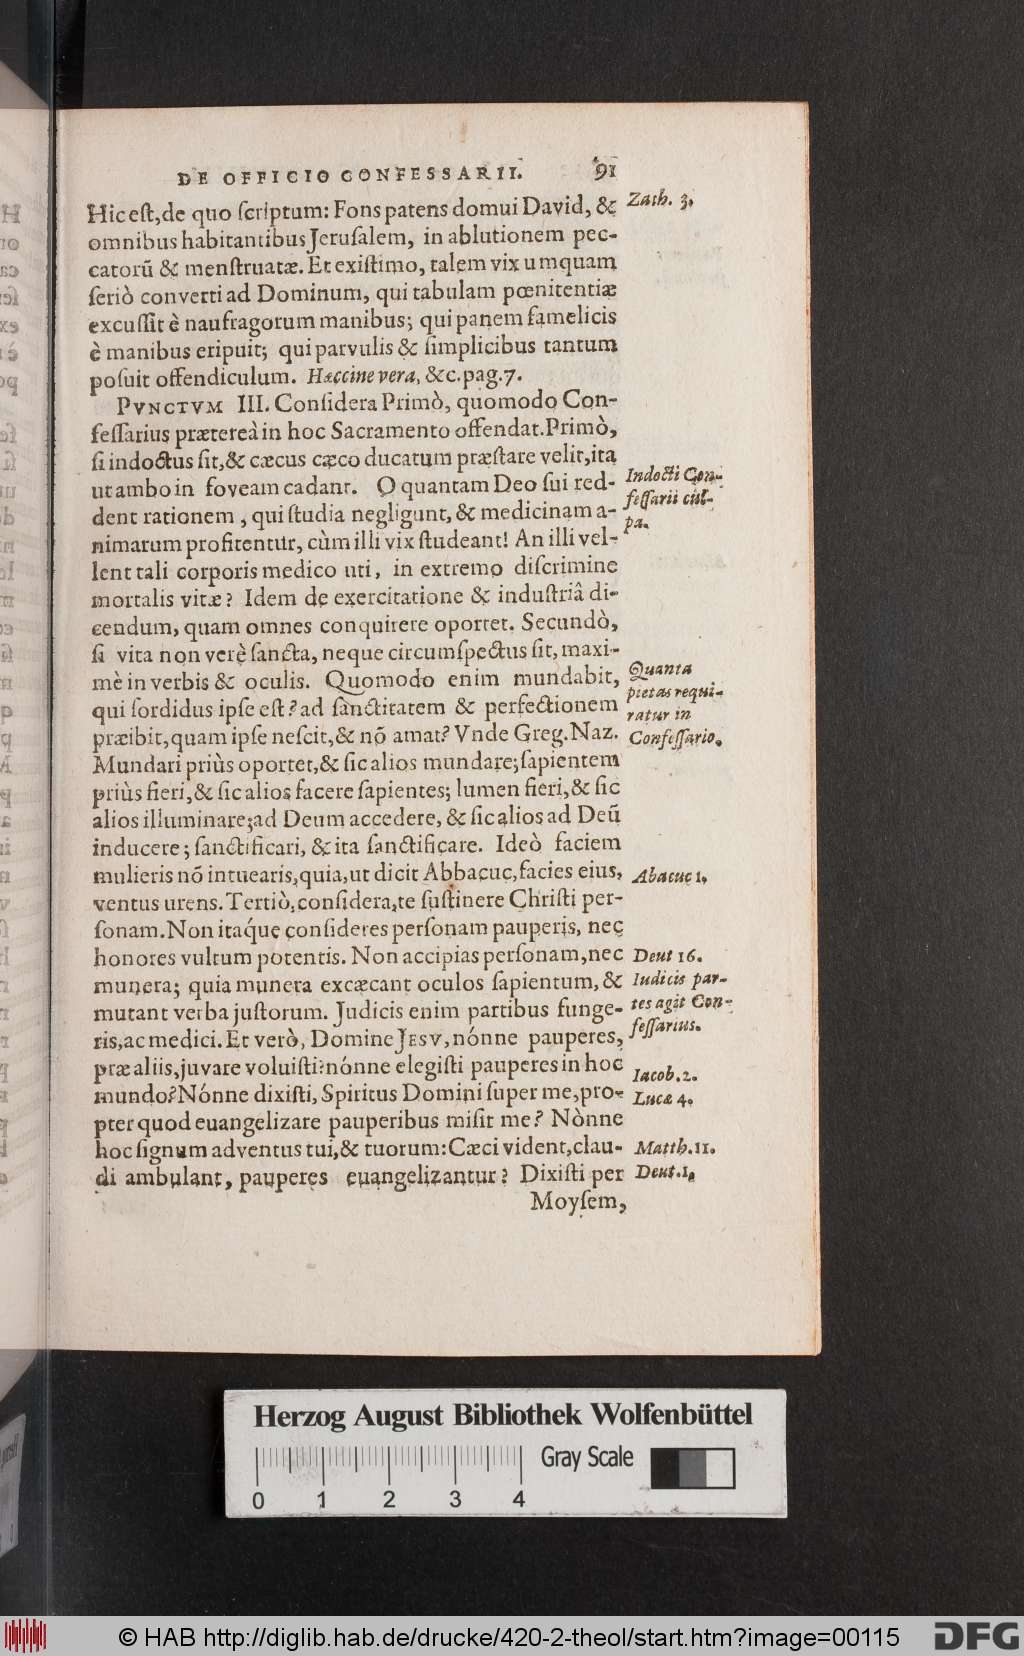 DE OFFICIO CONFESSARII. 91
Hic eſt, de quo ſcriptum: Fons patens domui David, &
omnibus habitantibus Jeruſalem, in ablutionem pec-
catorũ & menſtruatæ. Et exiſtimo, talem vix umquam
ſeriò converti ad Dominum, qui tabulam pœnitentiæ
excuſſit è naufragorum manibus; qui panem famelicis
è manibus eripuit; qui parvulis & ſimplicibus tantum
poſuit offendiculum. Hæccine vera, &c. pag. 7.
PVNCTVM III. Conſidera Primò, quomodo Con-
feſſarius prætereà in hoc Sacramento offendat. Primò,
ſi indoctus ſit, & cæcus cæco ducatum præſtare velit, ita
ut ambo in foveam cadant. O quantam Deo ſui red-
dent rationem, qui ſtudia negligunt, & medicinam a-
nimarum profitentur, cùm illi vix ſtudeant! An illi vel-
lent tali corporis medico uti, in extremo diſcrimine
mortalis vitæ? Idem de exercitatione & induſtriâ di-
cendum, quam omnes conquirere oportet. Secundò,
ſi vita non verè ſancta, neque circumſpectus ſit, maxi-
mè in verbis & oculis. Quomodo enim mundabit,
qui ſordidus ipſe eſt? ad ſanctitatem & perfectionem
præibit, quam ipſe neſcit, & nõ amat? Vnde Greg. Naz.
Mundari priùs oportet, & ſic alios mundare; ſapientem
priùs fieri, & ſic alios facere ſapientes; lumen fieri, & ſic
alios illuminare; ad Deum accedere, & ſic alios ad Deũ
inducere; ſanctificari, & ita ſanctificare. Ideò faciem
mulieris nõ intuearis, quia, ut dicit Abbacuc, facies eius,
ventus urens. Tertiò, conſidera, te ſuſtinere Chriſti per-
ſonam. Non itáque conſideres perſonam pauperis, nec
honores vultum potentis. Non accipias perſonam, nec
munera; quia munera excæcant oculos ſapientum, &
mutant verba juſtorum. Judicis enim partibus funge-
ris, ac medici. Et verò, Domine JESV, nónne pauperes,
præ aliis, juvare voluiſti? nónne elegiſti pauperes in hoc
mundo? Nónne dixiſti, Spiritus Domini ſuper me, pro-
pter quod euangelizare pauperibus miſit me? Nònne
hoc ſignum adventus tui, & tuorum: Cæci vident, clau-
di ambulant, pauperes euangelizantur? Dixiſti per
Moyſem,
Zach. 3.
Indocti Con-
feſſarii cul-
pa.
Quanta
pietas requi-
ratur in
Confeſſario.
Abacuc 1.
Deut 16.
Iudicis par-
tes agit Con-
feſſarius.
Iacob. 2.
Lucæ 4.
Matth. 11.
Deut. 1.
Herzog August Bibliothek Wolfenbüttel
Gray Scale
0 1 2 3 4
© HAB http://diglib.hab.de/drucke/420-2-theol/start.htm?image=00115
DFG